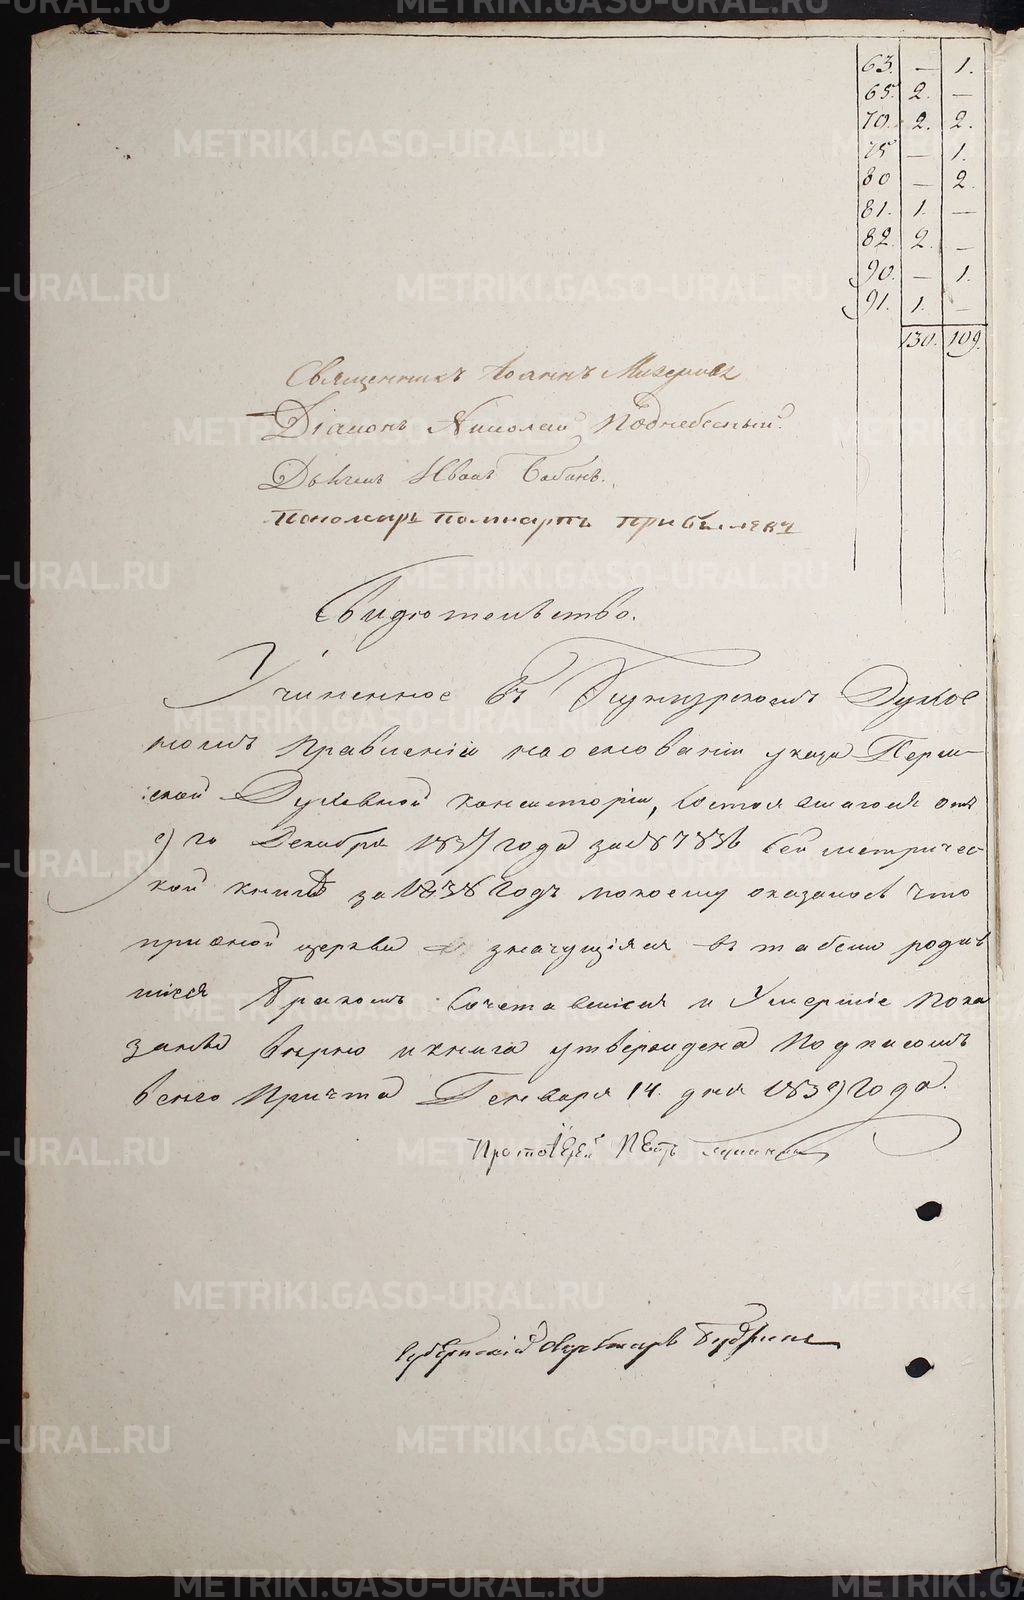 63. — 1.
65. 2. —
70. 2. 2.
75 — 1.
80 — 2.
81. 1. —
82. 2. —
90. — 1.
91. 1. —
130. 109.
Священникъ Іоаннъ
Діаконъ Николай Поднебесный.
Дьячекъ Иванъ Бабинъ.
Пономарь Поликарпъ Прибылевъ
Свидѣтельство.
Учиненное въ Духов
номъ Правленіи на основаніи указа Перм-
ской Духовной Консисторіи, состоявшагося отъ
9го Декабря 1837 года за № 7836 сей метричес-
кой книгѣ за 1838 годъ по коему оказалось что
при оной церкви значущіяся въ табели родив
шіеся Бракомъ Сочетавшіеся и Умершіе пока
заны вѣрно и книга утверждена Подписомъ
всего Причта Генваря 14. дня 1839 года.
Протоіерей Петръ
Губернскій Секретарь
METRIKI.GASO-URAL.RU